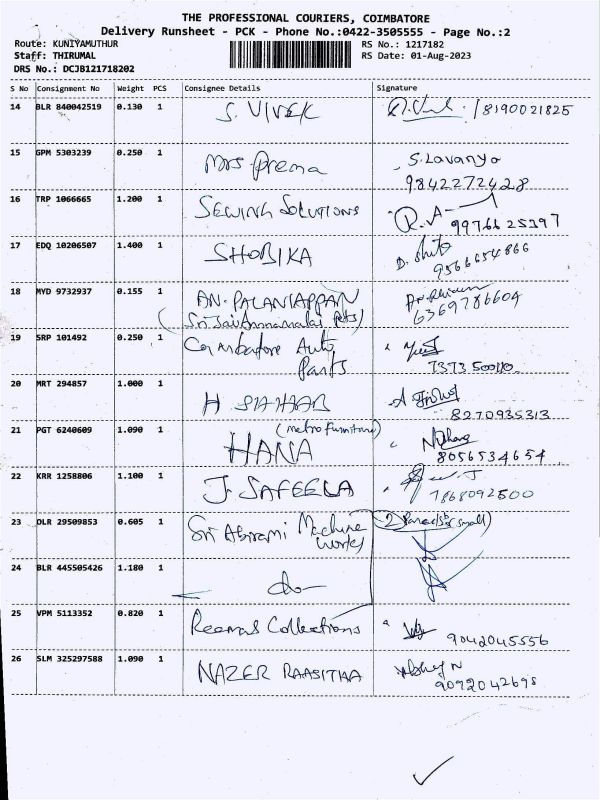 THE PROFESSIONAL COURIERS, COIMBATORE
Delivery Runsheet - PCK - Phone No.:0422-3505555 - Page No.:2
Route: KUNIYAMUTHUR RS No.: 1217182
Staff: THIRUMAL RS Date: 01-Aug-2023
DRS No.: DCJB121718202
S No Consignment No Weight PCS Consignee Details Signature
14 BLR 840042519 0.130 1 S. VIVEK /8190021825
15 GPM 5303239 0.250 1 Mrs Prema S. Lavanya
9842272428
16 TRP 1066665 1.200 1 SEWING SOLUTIONS R.A
9976625397
17 EDQ 10206507 1.400 1 SHOBIKA
9566654866
18 MYD 9732937 0.155 1 AN. PALANIAPPAN
(Sri Jai Annamalai Pets) 6369786604
19 SRP 101492 0.250 1 Coimbatore Auto
Parts
20 MRT 294857 1.000 1 H
8270935313
21 PGT 6240609 1.090 1 (metro furniture)
HANA 8056534654
22 KRR 1258806 1.100 1 J. SAFEELA
7868092500
23 DLR 29509853 0.605 1 Sri Abirami Machine (2 small)
works
24 BLR 445505426 1.180 1 do
25 VPM 5113352 0.820 1 Reemas Collections 9042045556
26 SLM 325297588 1.090 1 NAZER RAASITHA
9092042698